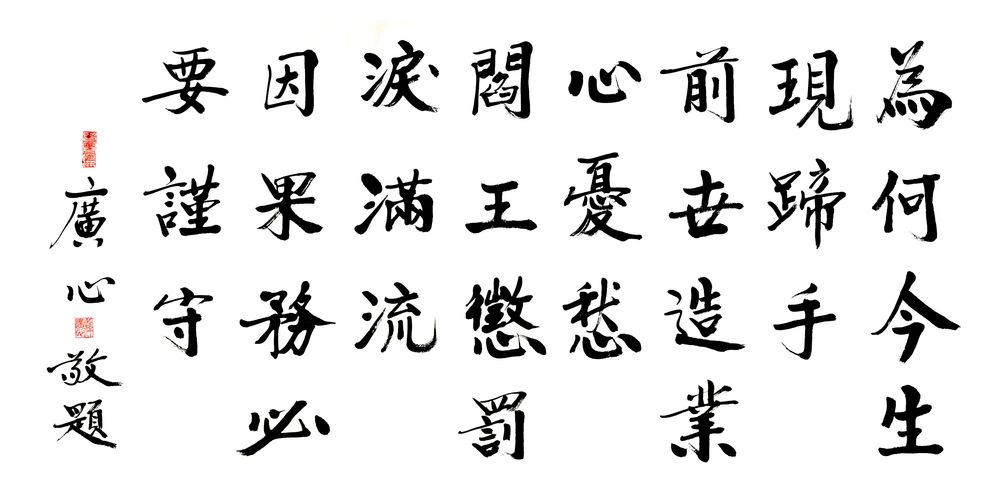 為何今生
現蹄手
前世造業
心憂愁
閻王懲罰
淚滿流
因果務必
要謹守
廣心敬題